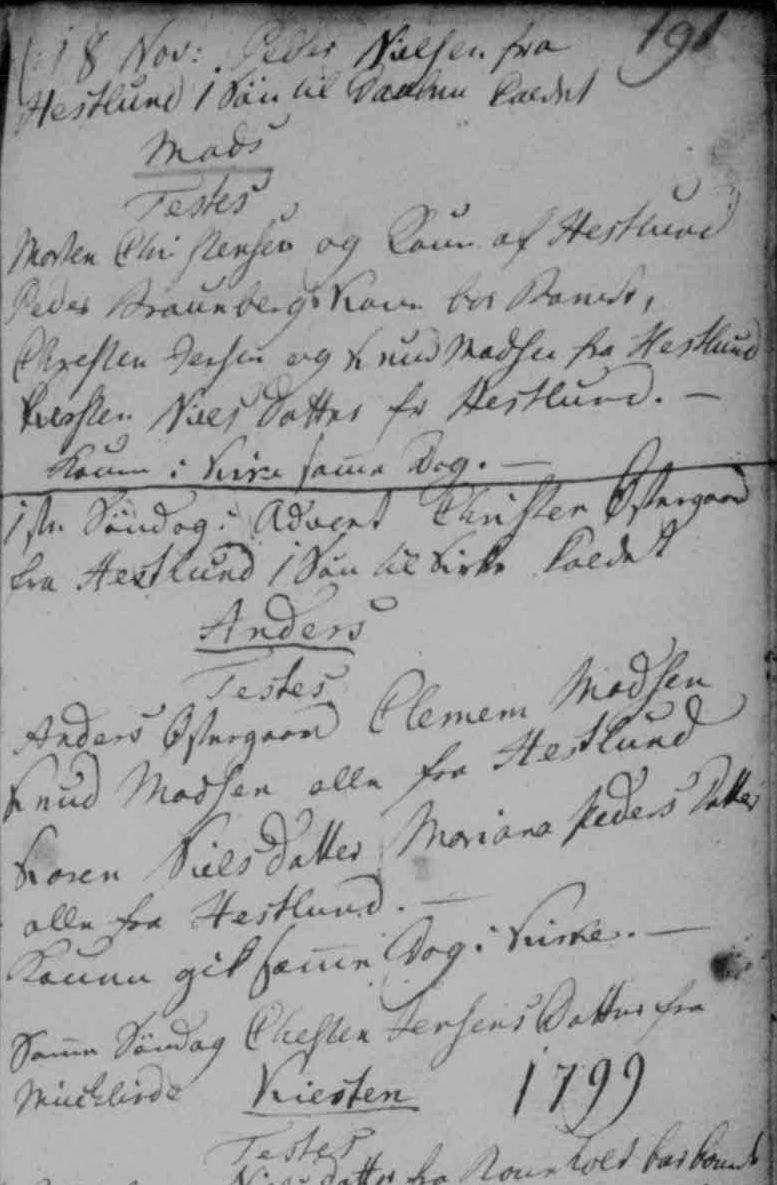 191
18 Nov: Peder Nielsen fra
Hestlund 1 Sön til Daaben kaldet
Mads
Testes
Morten Christensen og Kone af Hestlund
Peder Braunbergs Kone bar Barnet,
Chresten Jensen og Knud Madsen fra Hestlund
Kirsten Niels Datter fr Hestlund. —
Konen i Kirke samme Dag. —
1ste Söndag i Advent Christen Östergaard
fra Hestlund 1 Sön til Kirke kaldet
Anders
Testes
Anders Östergaard Clemem Madsen
Knud Madsen alle fra Hestlund
Karen Niels Datter Mariana Peders Datter
alle fra Hestlund. —
Konen gik samme Dag i Kirke. —
Samme Söndag Chresten Jensens Datter fra
Kiersten 1799
Testes
Niels datter fra bar barnet